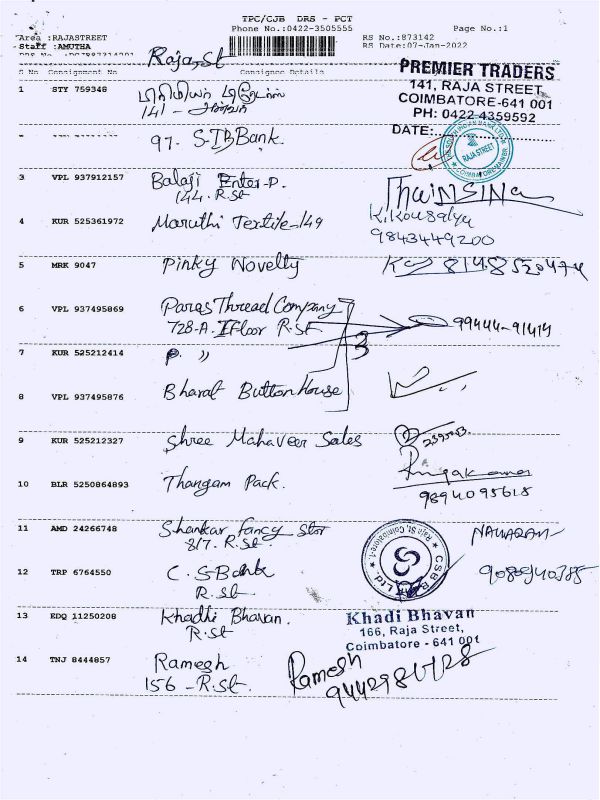 TPC/CJB DRS - PCT
Phone No.:0422-3505555
Page No.:1
Area :RAJASTREET
RS No.:873142
Staff :AMUTHA
RS Date:07-Jan-2022
Raja, St
S No Consignment No Consignee Details
PREMIER TRADERS
141, RAJA STREET
COIMBATORE-641 001
PH: 0422-4359592
DATE:
1 STY 759348
141 -
97. S.IB Bank.
RAJA STREET
3 VPL 937912157 Balaji Enter-P.
144. R.St
4 KUR 525361972 Maruthi Textile-149
K.Kousalya
9843449200
5 MRK 9047 Pinky Novelty
8148520474
6 VPL 937495869 Paras Thread Company
728-A. I Floor R.St
99444-91414
3
7 KUR 525212414
8 VPL 937495876 Bharat Button House
9 KUR 525212327 Shree Mahaveer Sales
10 BLR 5250864893 Thangam Pack.
9894095618
11 AMD 24266748 Shankar Fancy Stor
817. R.St.
Raja St, Coimbatore-1.
CSB Bank Ltd
12 TRP 6764550 C.S-Bank
R.St
9080940385
13 EDQ 11250208 Khadhi Bhavan.
R.St
Khadi Bhavan
166, Raja Street,
Coimbatore - 641 001
14 TNJ 8444857 Ramesh
156 - R.St.
Ramesh